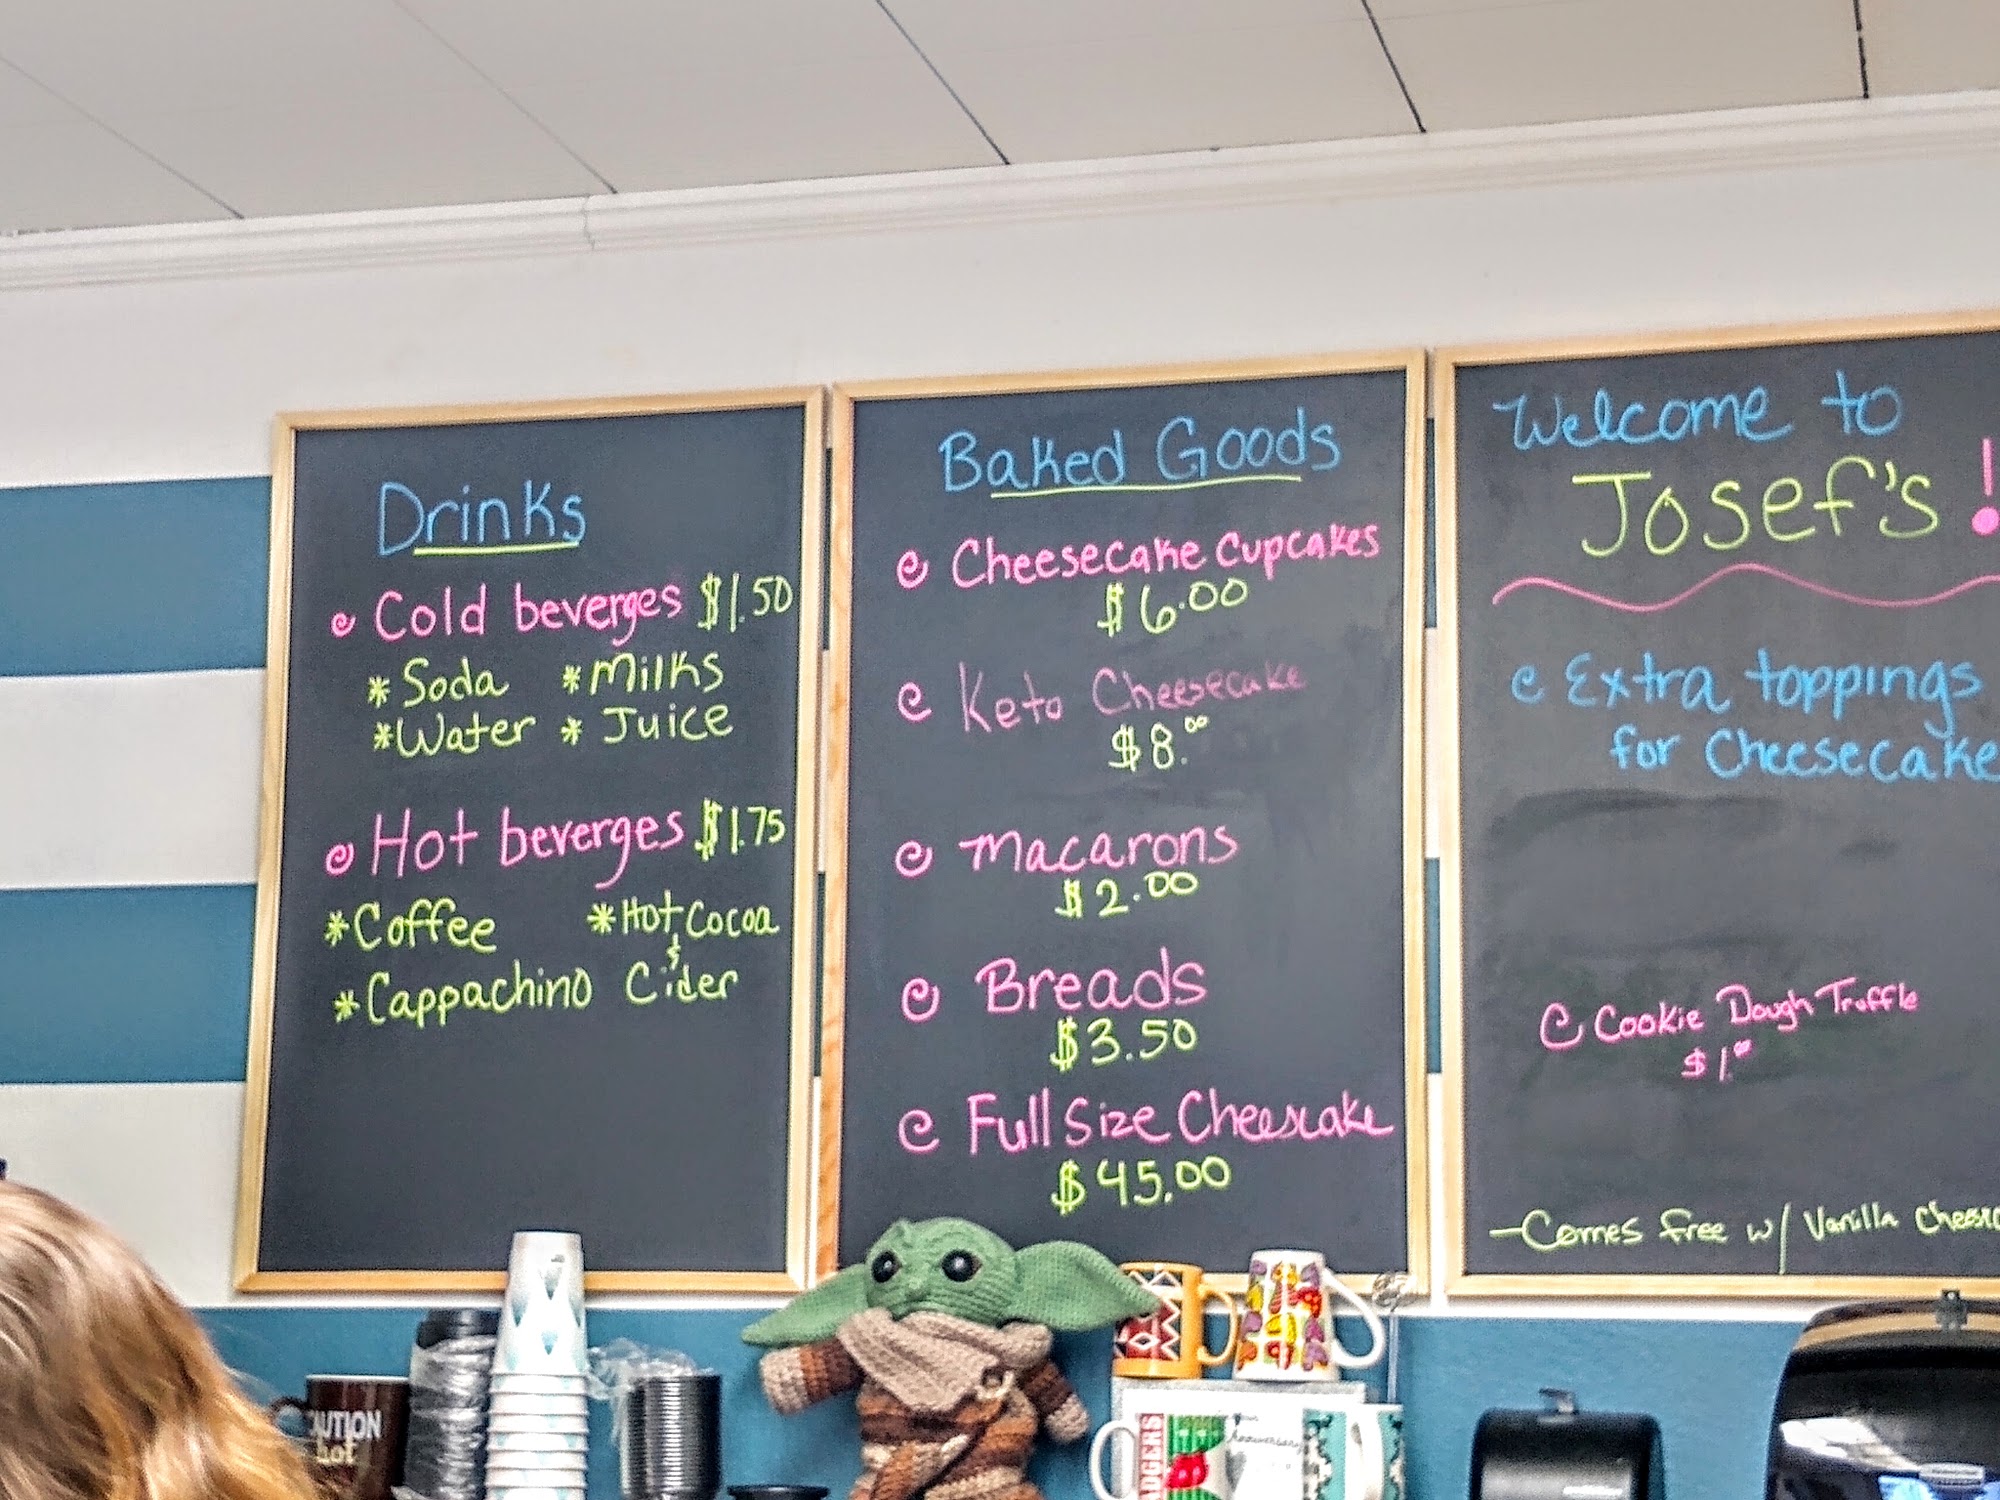 Drinks
Cold beverges $1.50
*Soda *Milks
*Water *Juice
Hot beverges $1.75
*Coffee *Hot Cocoa
&
*Cappachino Cider
Baked Goods
Cheesecake Cupcakes
$6.00
Keto Cheesecake
$8.00
Macarons
$2.00
Breads
$3.50
Full Size Cheesecake
$45.00
Welcome to
Josef's!
Extra toppings
for Cheesecake
Cookie Dough Truffle
$1.00
-Comes free w/ Vanilla
CAUTION
hot